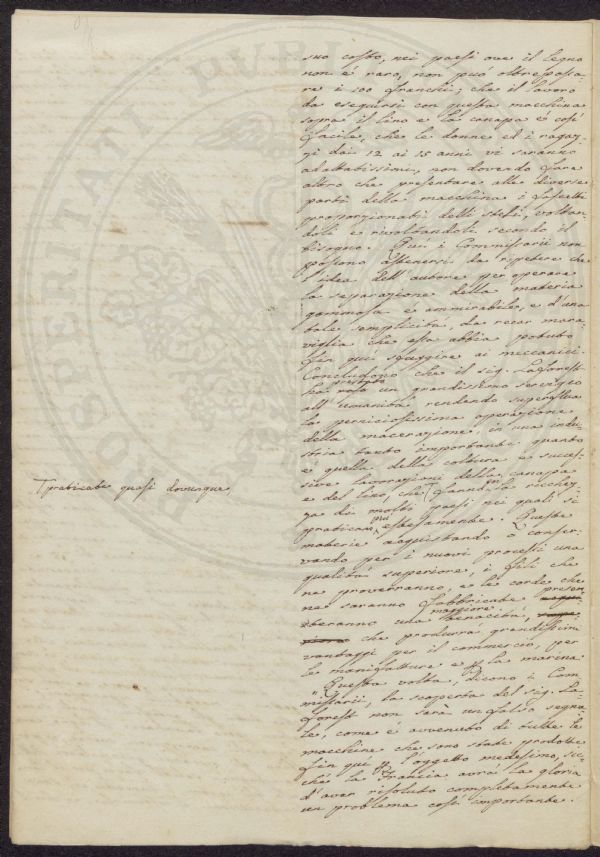 suo costo, nei paesi ove il legno
non è raro, non può oltrepassa-
re i 100 franchi; che il lavoro
da eseguirsi con questa macchina
sopra il lino e la canapa è così
facile, che le donne ed i ragaz-
zi dai 12 ai 15 anni vi saranno
adattatissimi, non dovendo fare
altro che presentare alle diverse
parti della macchina i fascetti
proporzionati delli steli, voltan-
doli e rivoltandoli secondo il
bisogno. Più i Commissarii non
possono astenersi da ripetere che
l'idea dell'autore per operare
la separazione della materia
gommosa è ammirabile, e d'una
tale semplicità, da recar mara-
viglia che essa abbia potuto
fin quì sfuggire ai meccanici.
Concludono che il sig. Laforest
ha prestato un grandissimo servigio
all'umanità rendendo superflua
la perniciosissima operazione
della macerazione, in una indu-
stria tanto importante quanto
è quella della coltura e succes-
sive lavorazioni della canapa
e del lino, che fanno la ricchez-
za di molti paesi nei quali si
praticano più estesamente. Queste
praticate quasi dovunque,
materie acquistando o conser-
vando per i nuovi processi una
qualità superiore, i fili che
ne proverranno, e le corde che
ne saranno fabbricate presen-
teranno una maggiore tenacità,
che produrrà grandissimi
vantaggi per il commercio, per
le manifatture e p la marina
"Questa volta, dicono i Com-
missarii, la scoperta del sig. La-
forest non sarà un falso segna-
le, come è avvenuto di tutte le
macchine che sono state prodotte
fin quì p l'oggetto medesimo, sic-
chè la Francia avrà la gloria
d'aver risoluto completamente
un problema così importante.
POSTERITATI PUBL